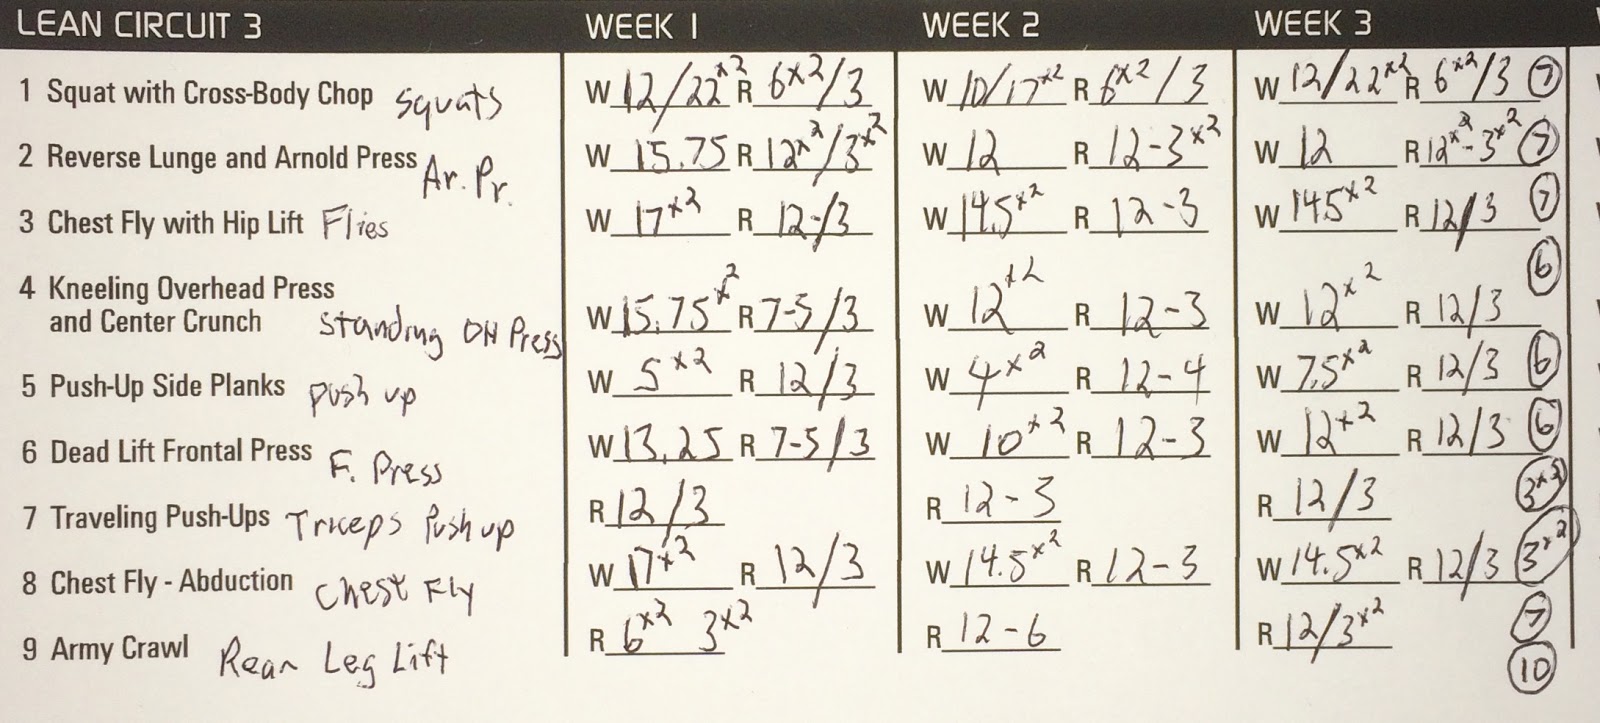 LEAN CIRCUIT 3 WEEK 1 WEEK 2 WEEK 3
1 Squat with Cross-Body Chop Squats W 12/22x2 R 6x2/3 W 10/17x2 R 6x2/3 W 12/22x2 R 6x2/3 7
2 Reverse Lunge and Arnold Press Ar. Pr. W 15.75 R 12x2/3x2 W 12 R 12-3x2 W 12 R 12x2-3x2 7
3 Chest Fly with Hip Lift Flies W 17x2 R 12-/3 W 14.5x2 R 12-3 W 14.5x2 R 12/3 7
6
4 Kneeling Overhead Press
and Center Crunch Standing OH Press W 15.75x2 R 7-5/3 W 12x2 R 12-3 W 12x2 R 12/3
5 Push-Up Side Planks push up W 5x2 R 12/3 W 4x2 R 12-4 W 7.5x2 R 12/3 6
6 Dead Lift Frontal Press F. Press W 13.25 R 7-5/3 W 10x2 R 12-3 W 12x2 R 12/3 6
7 Traveling Push-Ups Triceps Push up R 12/3 R 12-3 R 12/3
8 Chest Fly - Abduction Chest Fly W 17x2 R 12/3 W 14.5x2 R 12-3 W 14.5x2 R 12/3 3x2
9 Army Crawl Rear Leg Lift R 6x2 3x2 R 12-6 R 12/3x2 7
10